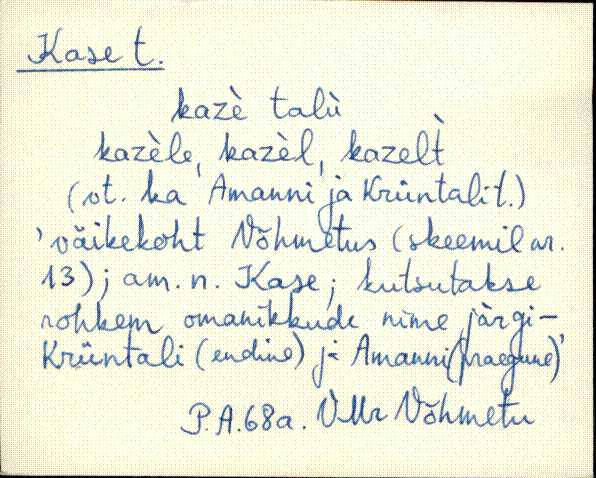 Kase t.
kazè talù
kazèle, kazèl, kazelt̀
(vt. ka Amanni ja Krüntali t.)
'väikekoht Võhmetus (skeemil nr.
13); am. n. Kase; kutsutakse
rohkem omanikkude nime järgi –
Krüntali (endine) ja Amanni (praegune)'
P.A. 68a. VMr Võhmetu